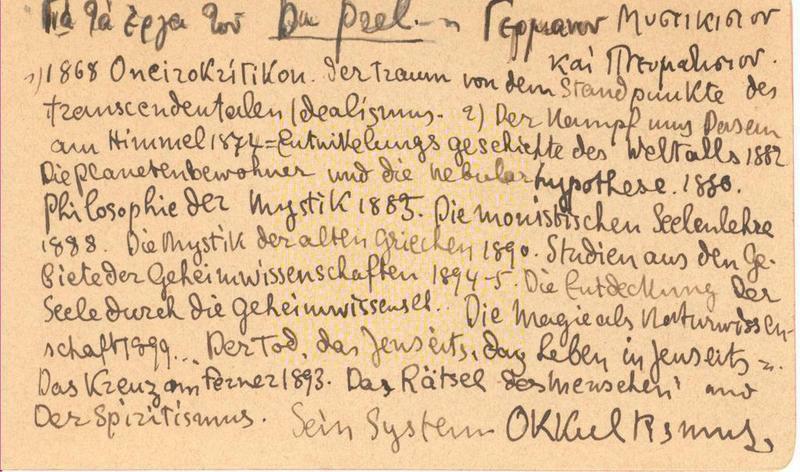 Γιά τά έργα του Du Prel. – Γερμανου Μυστικιστου
καί Πνευματιστου.
1) 1868 Oneirokritikon. Der Traum von dem Standpunkte des
transcendentalen Idealismus. 2) Der Kampf ums Dasein
am Himmel 1874 = Entwikelungsgeschichte des Weltalls 1882
Die Planetenbewohner und die nebularhypothese. 1880.
Philosophie der Mystik 1885. Die monistischen Seelenlehre
1888. Die Mystik der alten Griechen 1890. Studien aus den Ge-
biete der Geheimwissenschaften 1894-5. Die Entdeckung Der
Seele durch die Geheimwissensch.. Die Magie als Naturwissen-
schaft 1899... Der Tod, das Jenseits, das Leben in Jenseits
Das Kreuz am Ferner 1893. Das Rätsel des Menschen und
Der Spiritismus. Sein System Okkultismus.